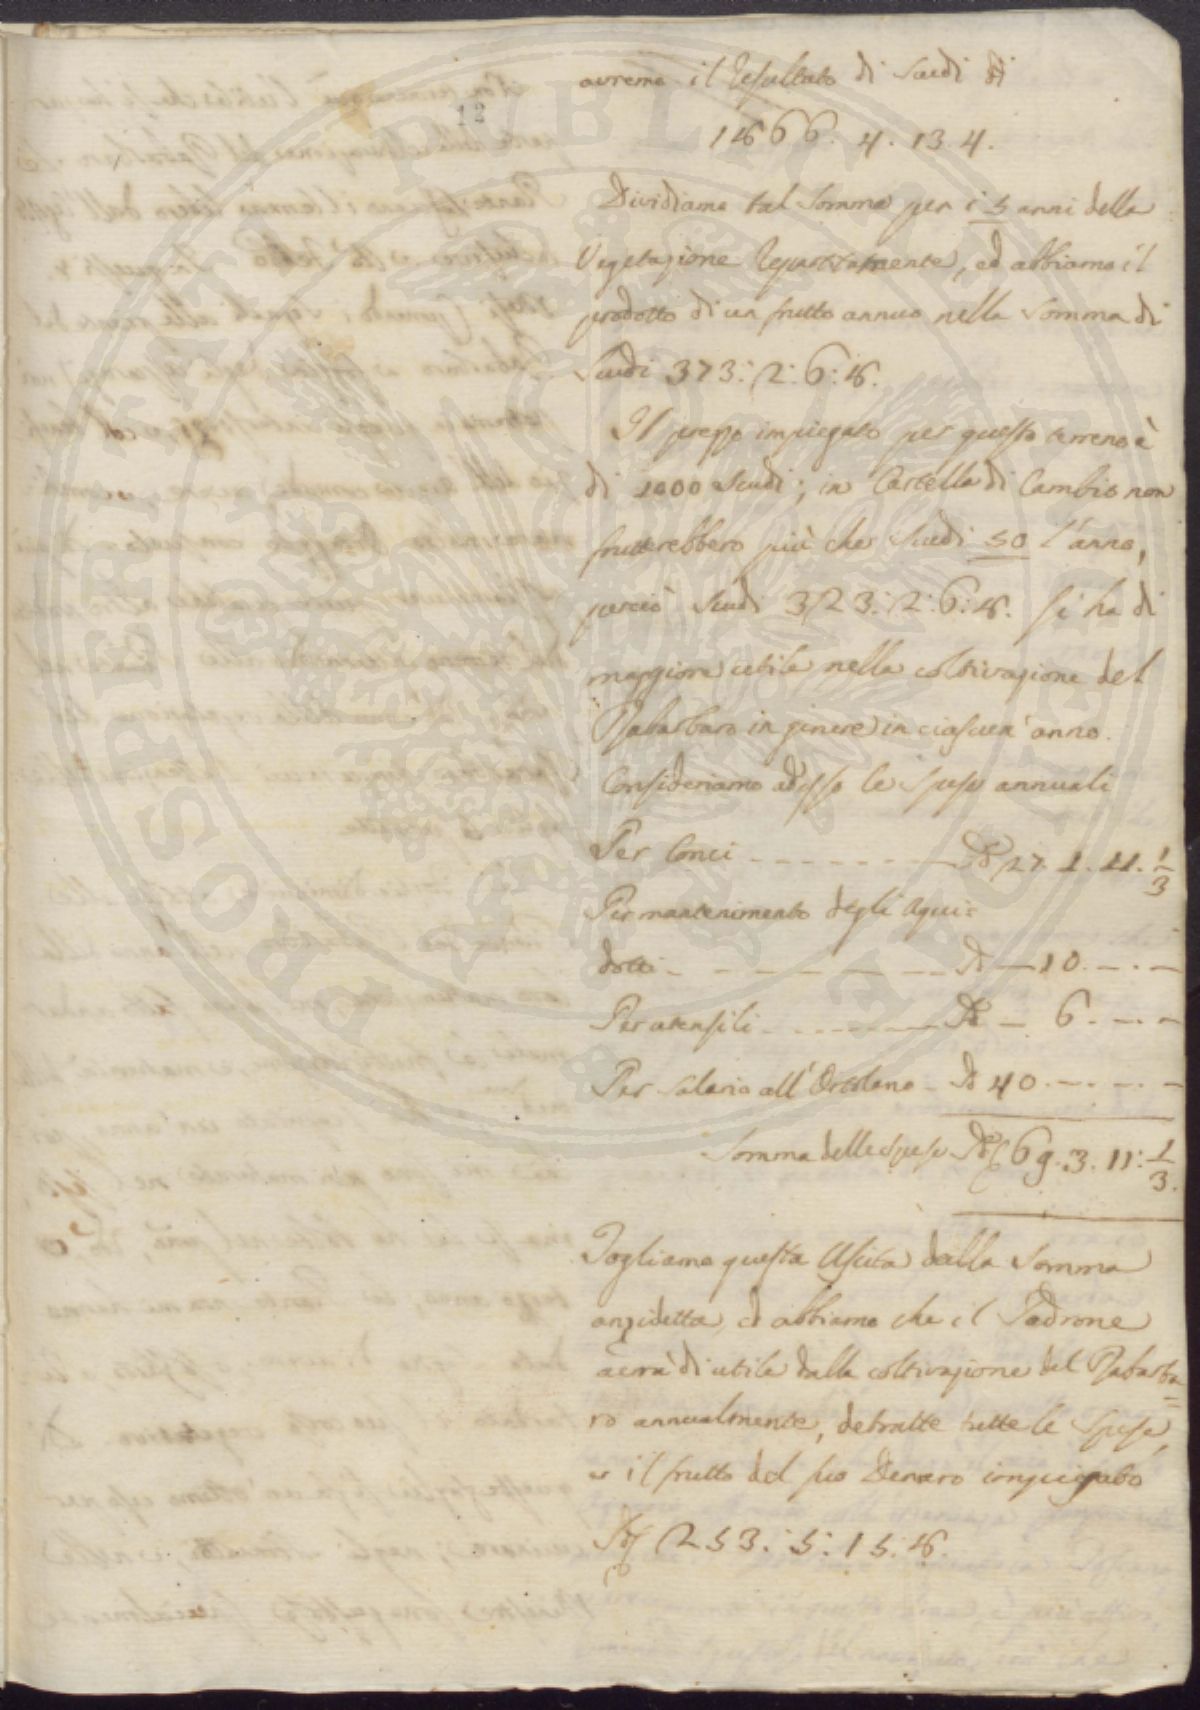 12
avremo il Resultato di Scudi
1866. 4. 13. 4.
Dividiamo tal Somma per i 5 anni della
Vegetazione Repartitamente, ed abbiamo il
prodotto di un frutto annuo nella Somma di
Scudi 373: 2: 6: 8.
Il prezzo impiegato per questo terreno è
di 1000 Scudi; in Cartella di Cambio non
frutterebbero più che Scudi 50 l'anno,
perciò Scudi 323: 2: 6: 8. si ha di
maggiore utile nella coltivazione del
Rabarbaro in genere in ciascun' anno.
Consideriamo adesso le spese annuali
Per Conci - - - - - - - 27. 1. 11. 1/3
Per mantenimento degli Aqui=
dotti - - - - - - - — 10. — . —
Per utensili - - - - - - — 6. — . —
Per Salario all'Ortolano - 40. — . — . —
Somma delle spese 69. 3. 11: 1/3.
Togliamo questa Uscita dalla Somma
anzidetta, ed abbiamo che il Padrone
avrà di utile dalla coltivazione del Rabarba=
ro annualmente, detratte tutte le Spese,
e il frutto del suo Denaro impiegato
253: 5: 15: 8.
PROSPERITATI PVBLICAE AVGENDAE